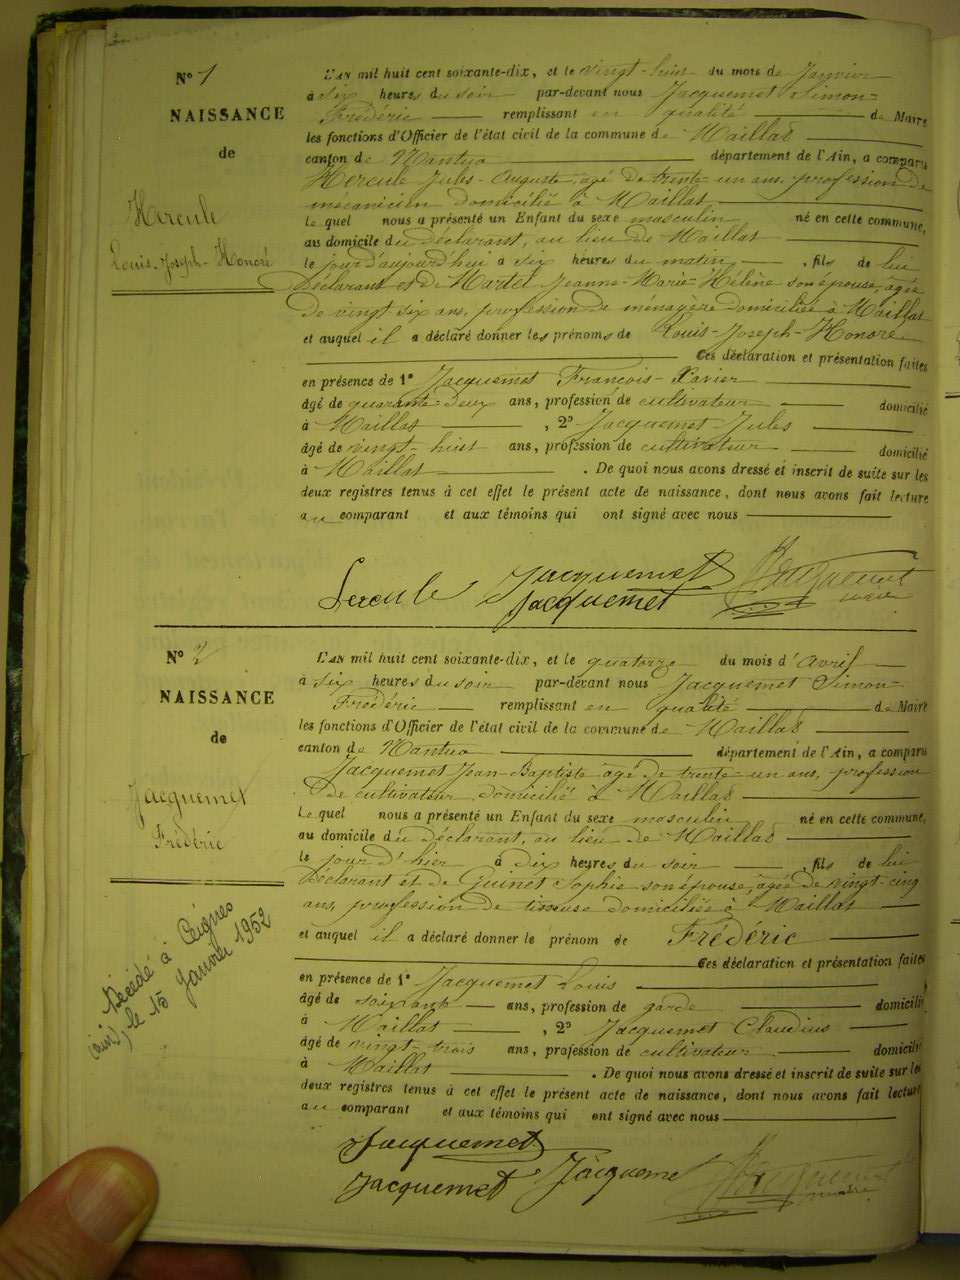 N° 1
NAISSANCE
de
Hercule
Louis-Joseph-Honoré
L'AN mil huit cent soixante-dix, et le vingt-huit du mois de Janvier
à six heures du soir par-devant nous Jacquemet Simon-
Frédéric remplissant en qualité de Maire
les fonctions d'Officier de l'état civil de la commune de Maillat
canton de Nantua département de l'Ain, a comparu
Hercule Jules-Auguste, agé de trente-un ans, profession de
mécanicien domicilié à Maillat,
Le quel nous a présenté un Enfant du sexe masculin né en cette commune,
au domicile du déclarant, au lieu de Maillat
le jour d'aujourd'hui à six heures du matin, fils de lui
Déclarant et de Martel Jeanne-Marie-Hélène son épouse, agée
de vingt six ans, profession de ménagère domiciliée à Maillat
et auquel il a déclaré donner les prénoms de Louis-Joseph-Honoré
Ces déclaration et présentation faites
en présence de 1° Jacquemet François-Xavier
âgé de quarante-deux ans, profession de cultivateur domicilié
à Maillat, 2° Jacquemet Jules
âgé de vingt-huit ans, profession de cultivateur domicilié
à Maillat. De quoi nous avons dressé et inscrit de suite sur les
deux registres tenus à cet effet le présent acte de naissance, dont nous avons fait lecture
au comparant et aux témoins qui ont signé avec nous
Hercule Jacquemet Jacquemet
Jacquemet maire
N° 2
NAISSANCE
de
Jacquemet
Frédéric
Décédé à Ceignes
(Ain), le 15 Janvier 1952
L'AN mil huit cent soixante-dix, et le quatorze du mois d'Avril
à six heures du soir par-devant nous Jacquemet Simon-
Frédéric remplissant en qualité de Maire
les fonctions d'Officier de l'état civil de la commune de Maillat
canton de Nantua département de l'Ain, a comparu
Jacquemet Jean-Baptiste agé de trente-un ans, profession
de cultivateur domicilié à Maillat
Le quel nous a présenté un Enfant du sexe masculin né en cette commune,
au domicile du déclarant, au lieu de Maillat
le jour d'hier à dix heures du soir, fils de lui
Déclarant et de Guinet Sophie son épouse, agée de vingt-cinq
ans, profession de tisseuse domiciliée à Maillat
et auquel il a déclaré donner le prénom de Frédéric
Ces déclaration et présentation faites
en présence de 1° Jacquemet Louis
âgé de soixante ans, profession de garde domicilié
à Maillat, 2° Jacquemet Claudius
âgé de vingt-trois ans, profession de cultivateur domicilié
à Maillat. De quoi nous avons dressé et inscrit de suite sur les
deux registres tenus à cet effet le présent acte de naissance, dont nous avons fait lecture
au comparant et aux témoins qui ont signé avec nous
Jacquemet
Jacquemet Jacqueme Jacquemet
maire